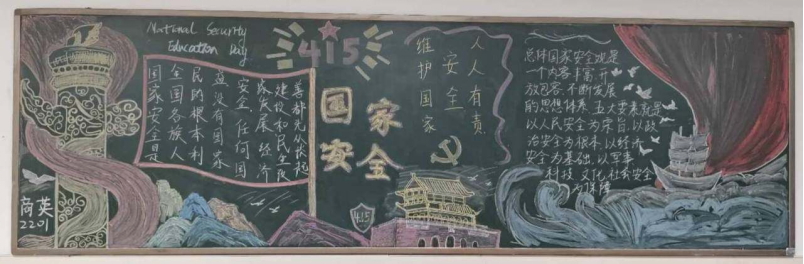 National Security
Education Day
415
国家安全是
全国各族人
民的根本利
益没有国家
安全任何国
家发展经济
建设和民生改
善都无从谈起
国家
安全
维护国家
安全
人人有责
总体国家安全观是
一个内容丰富、开
放包容、不断发展
的思想体系 五大要素就是
以人民安全为宗旨 以政
治安全为根本 以经济
安全为基础 以军事
科技 文化 社会安全
为保障
415
商英
2201